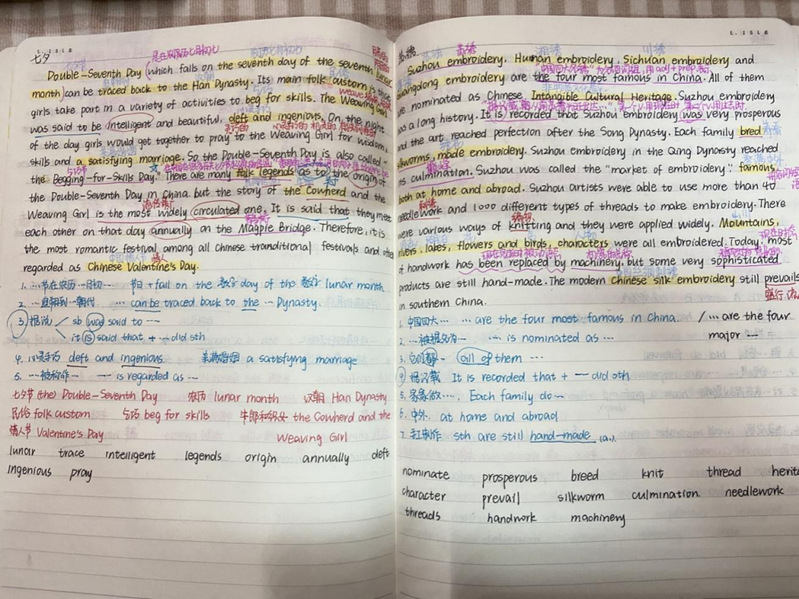 七夕
Double-Seventh Day (which falls on the seventh day of the seventh lunar
month) can be traced back to the Han Dynasty. Its main folk custom is that
girls take part in a variety of activities to beg for skills. The Weaving Girl
was said to be intelligent and beautiful, deft and ingenious. On the night
of the day girls would get together to pray to the Weaving Girl for
skills and a satisfying marriage. So the Double-Seventh Day is also called
the Begging-for-Skills Day. There are many folk legends as to the origin of
the Double-Seventh Day in China but the story of the Cowherd and the
Weaving Girl is the most widely circulated one. It is said that they meet
each other on that day annually on the Magpie Bridge. Therefore, it is
the most romantic festival among all Chinese tranditional festivals and
regarded as Chinese Valentine's Day.
1. …节在农历…月初… 节+fall on the 数字 day of the 数字 lunar month
2. can be traced back to the … Dynasty.
3. 据说 sb was said to …
it is said that + … did sth
4. 心灵手巧 deft and ingenious 美满婚姻 a satisfying marriage
5. …被称作… … is regarded as …
七夕节 (the) Double-Seventh Day 农历 lunar month 汉朝 Han Dynasty
民俗 folk custom 乞巧 beg for skills 牛郎和织女 the Cowherd and the
情人节 Valentine's Day Weaving Girl
lunar trace intelligent legends origin annually deft
ingenious pray
Suzhou embroidery, Hunan embroidery, Sichuan embroidery and
Guangdong embroidery are the four most famous in China. All of them
are nominated as Chinese Intangible Cultural Heritage. Suzhou embroidery
has a long history. It is recorded that Suzhou embroidery was very prosperous
and the art reached perfection after the Song Dynasty. Each family bred
silkworms, made embroidery. Suzhou embroidery in the Qing Dynasty reached
its culmination. Suzhou was called the "market of embroidery" famous
both at home and abroad. Suzhou artists were able to use more than 40
needlework and 1000 different types of threads to make embroidery. There
were various ways of knitting and they were applied widely. Mountains,
rivers, lakes, flowers and birds, characters were all embroidered. Today, most
of handwork has been replaced by machinery, but some very sophisticated
products are still hand-made. The modern Chinese silk embroidery still prevails
in southern China.
1. 中国四大… … are the four most famous in China. /… are the four
major …
2. …被提名为… … is nominated as …
3. all of them …
4. 据记载 It is recorded that + … did sth
5. 家家做…. Each family do …
6. 中外 at home and abroad
7. 手工制作 sth are still hand-made (a.).
nominate prosperous breed knit thread
character prevail silkworm culmination needlework
threads handwork machinery